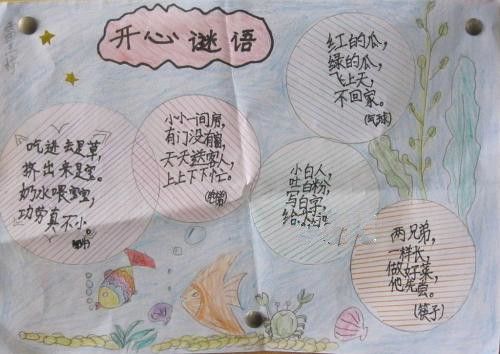 开心谜语
红的瓜，
绿的瓜，
飞上天，
不回家。
(气球)
小小一间房，
有门没有窗，
天天送客人，
上上下下忙。
(电梯)
吃进去是草，
挤出来是宝。
奶水喂宝宝，
功劳真不小。
小白人，
吐白粉，
写白字，
两兄弟，
一样长，
做好菜，
他先尝。
(筷子)